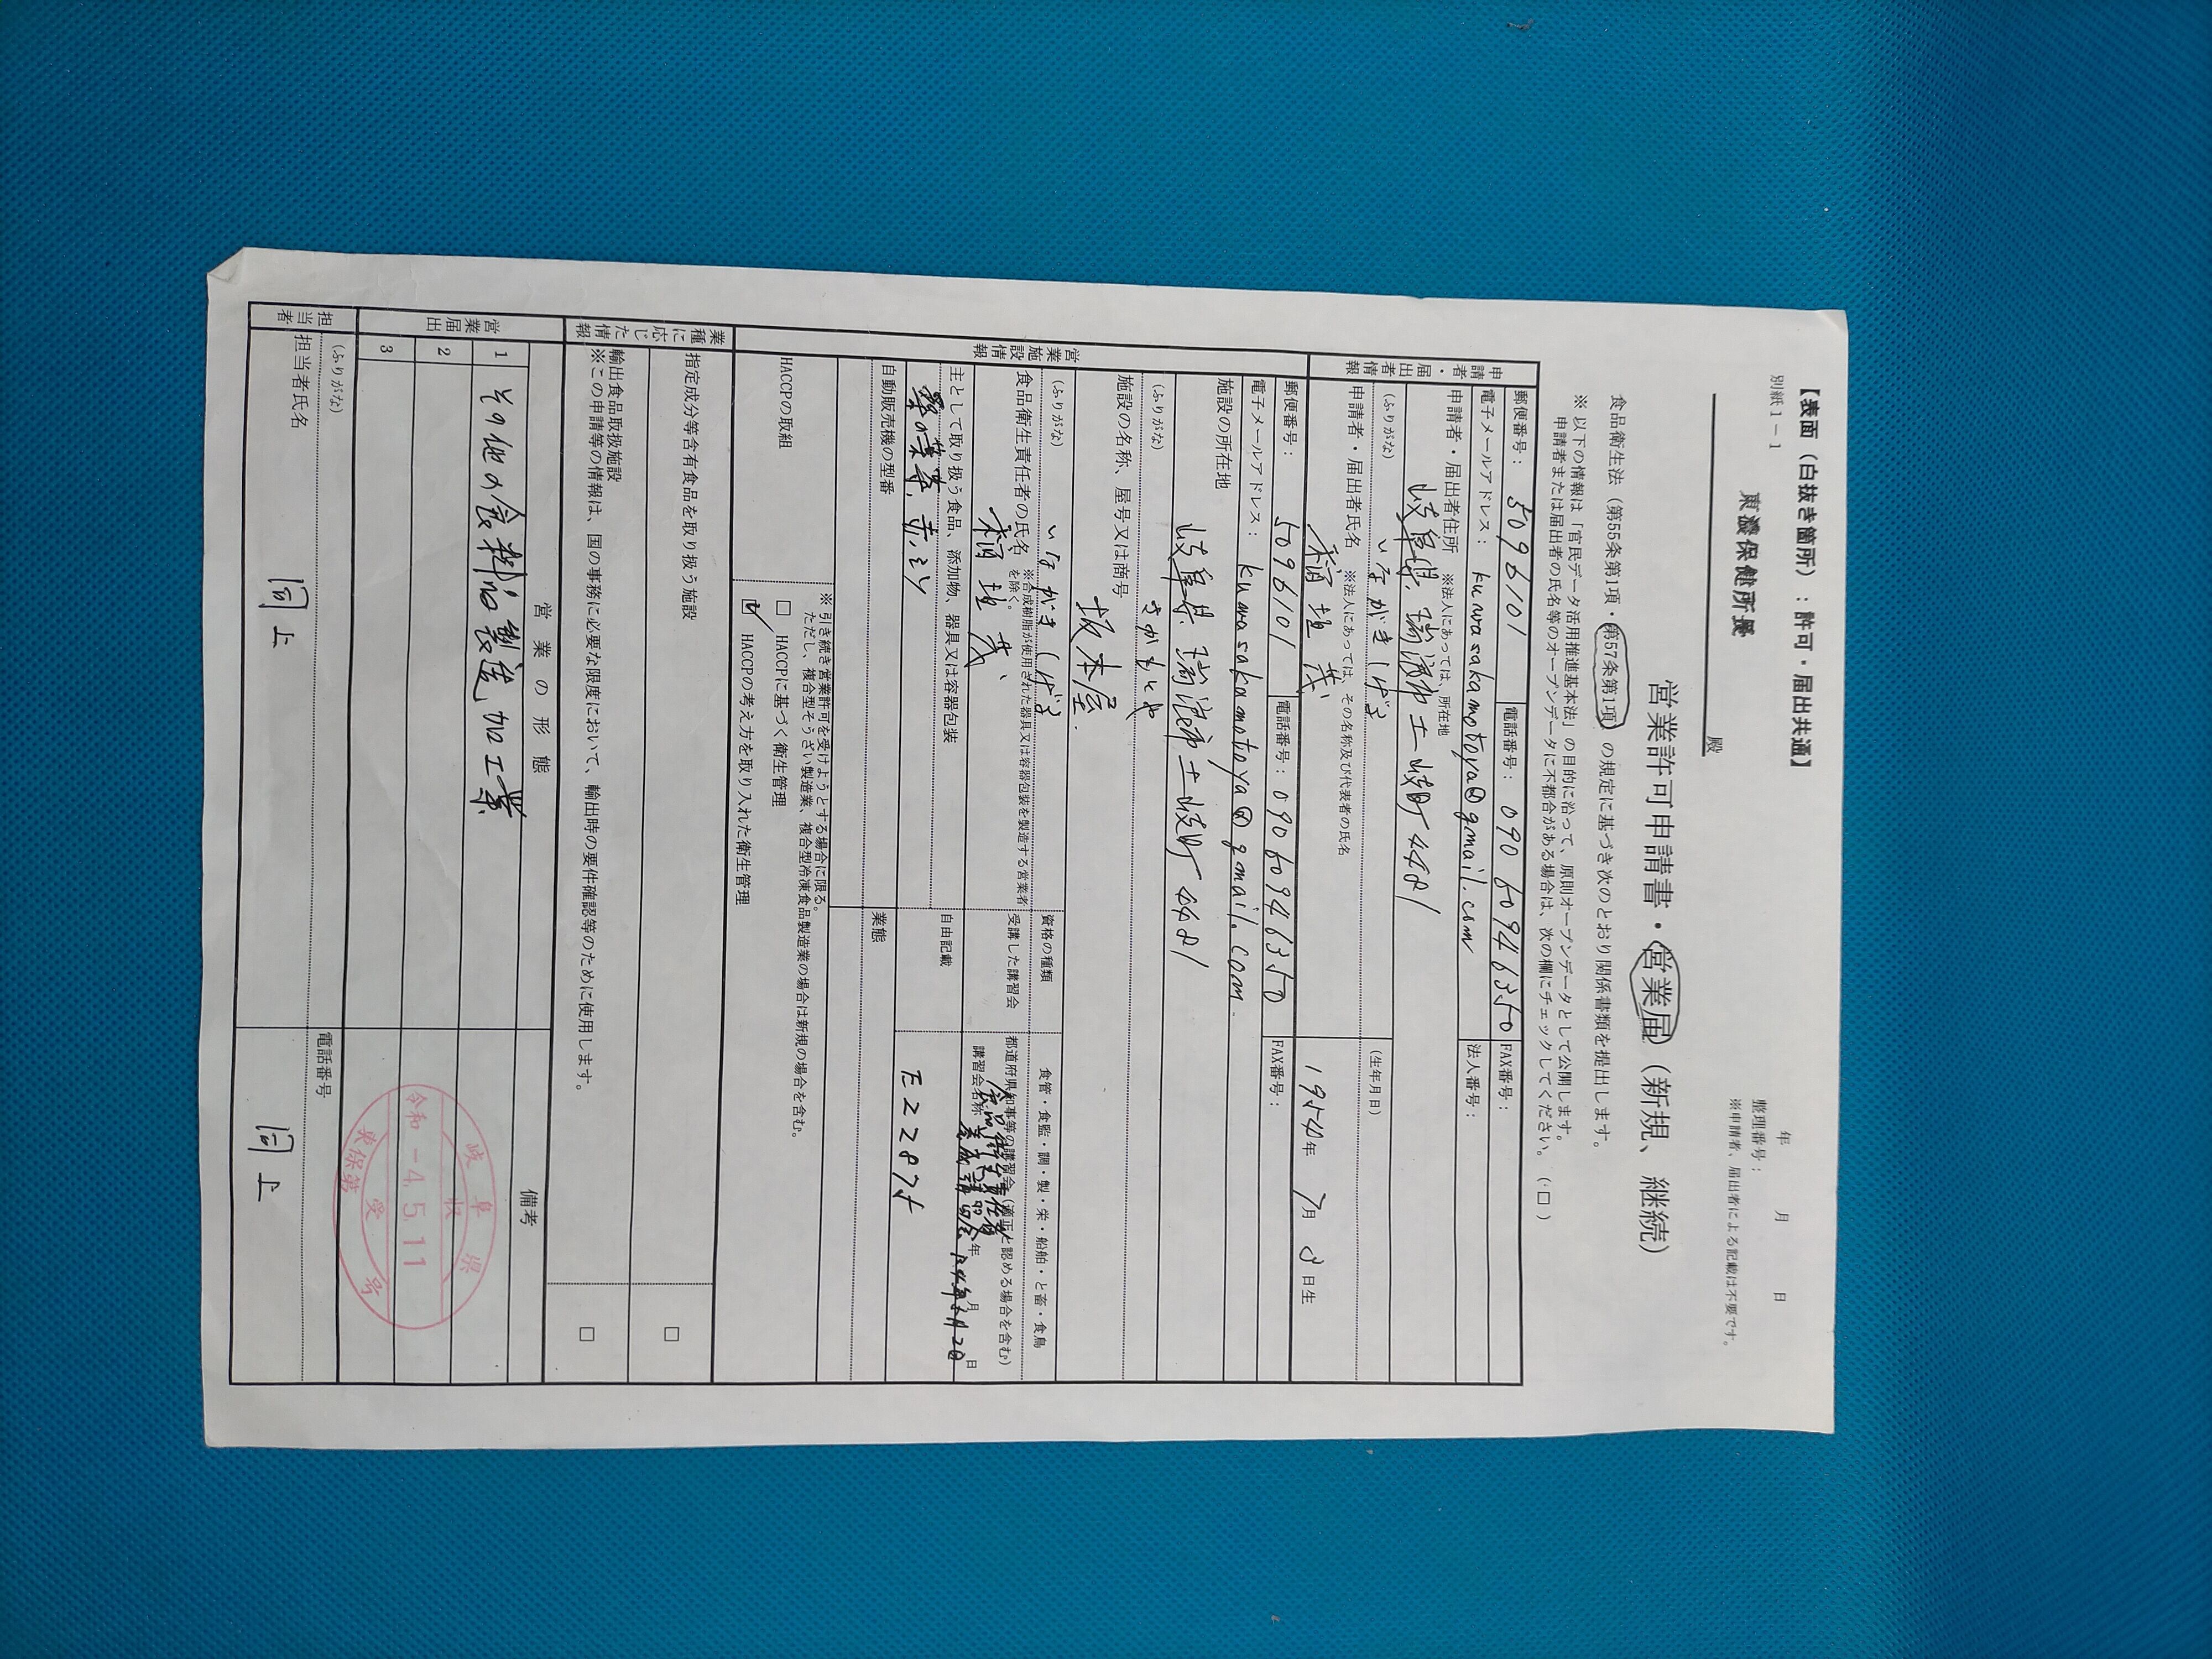 【表面（白抜き箇所）：許可・届出共通】
別紙1－1
年 月 日
整理番号：
※申請者、届出者による記載は不要です。
東濃保健所長 殿
営業許可申請書・営業届（新規、継続）
食品衛生法（第55条第1項・第57条第1項）の規定に基づき次のとおり関係書類を提出します。
※ 以下の情報は「官民データ活用推進基本法」の目的に沿って、原則オープンデータとして公開します。
申請者または届出者の氏名等のオープンデータに不都合がある場合は、次の欄にチェックしてください。（□）
申請者・届出者情報
郵便番号： 5096101 電話番号： 09060946350 FAX番号：
電子メールアドレス： kuwasakamotoya@gmail.com 法人番号：
申請者・届出者住所 ※法人にあっては、所在地
岐阜県瑞浪市土岐町4481
（ふりがな） いながきしげる （生年月日）
申請者・届出者氏名 ※法人にあっては、その名称及び代表者の氏名
稲垣 茂 1954年 7月 3日生
営業施設情報
郵便番号： 5096101 電話番号： 09060946350 FAX番号：
電子メールアドレス： kuwasakamotoya@gmail.com
施設の所在地
岐阜県瑞浪市土岐町4481
（ふりがな） さかもとや
施設の名称、屋号又は商号
坂本屋
（ふりがな） いながきしげる 資格の種類 食管・食監・調・製・栄・船舶・と畜・食鳥
食品衛生責任者の氏名 ※合成樹脂が使用された器具又は容器包装を製造する営業者を除く。 受講した講習会 都道府県知事等の講習会（適正と認める場合を含む）
稲垣 茂 講習会名称 食品衛生責任者養成講習会 年 月 日
主として取り扱う食品、添加物、器具又は容器包装 自由記載
E22875
自動販売機の型番 業態
HACCPの取組
※ 引き続き営業許可を受けようとする場合に限る。
ただし、複合型そうざい製造業、複合型冷凍食品製造業の場合は新規の場合を含む。
□ HACCPに基づく衛生管理
☑ HACCPの考え方を取り入れた衛生管理
業種に応じた情報
指定成分等含有食品を取り扱う施設 □
輸出食品取扱施設 □
※この申請等の情報は、国の事務に必要な限度において、輸出時の要件確認等のために使用します。
営業届出
営業の形態 備考
1 その他の食料品製造加工業
2
3
岐阜県
収受
令和-4.5.11
東保第 号
担当者
（ふりがな） 電話番号
担当者氏名 同上 同上